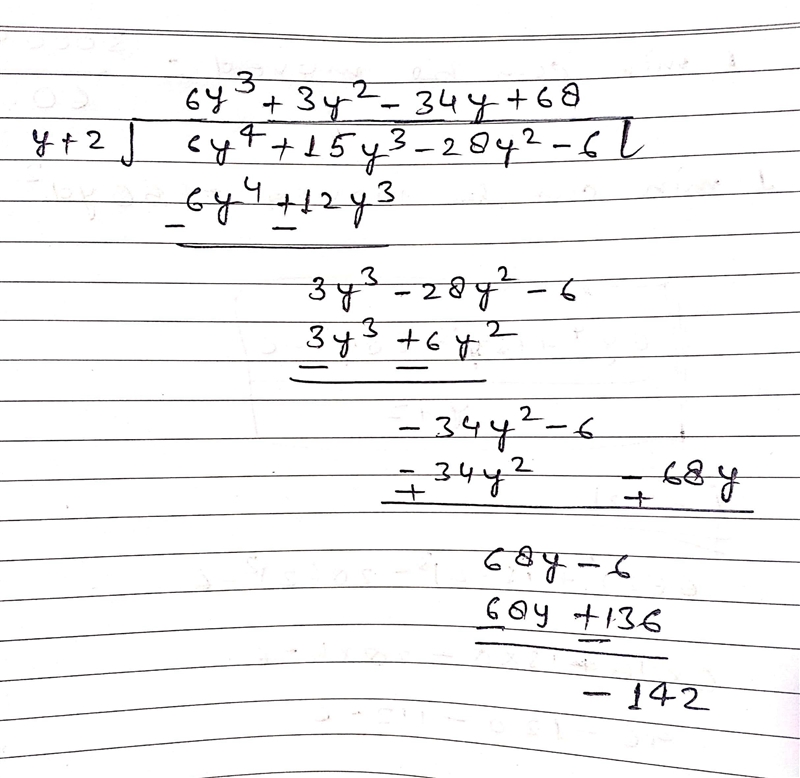 6y³ + 3y² - 34y + 68
y + 2 ) 6y⁴ + 15y³ - 28y² - 6 (
6y⁴ + 12y³
- -
3y³ - 28y² - 6
3y³ + 6y²
- -
- 34y² - 6
- 34y² - 68y
+ +
68y - 6
68y + 136
- -
- 142